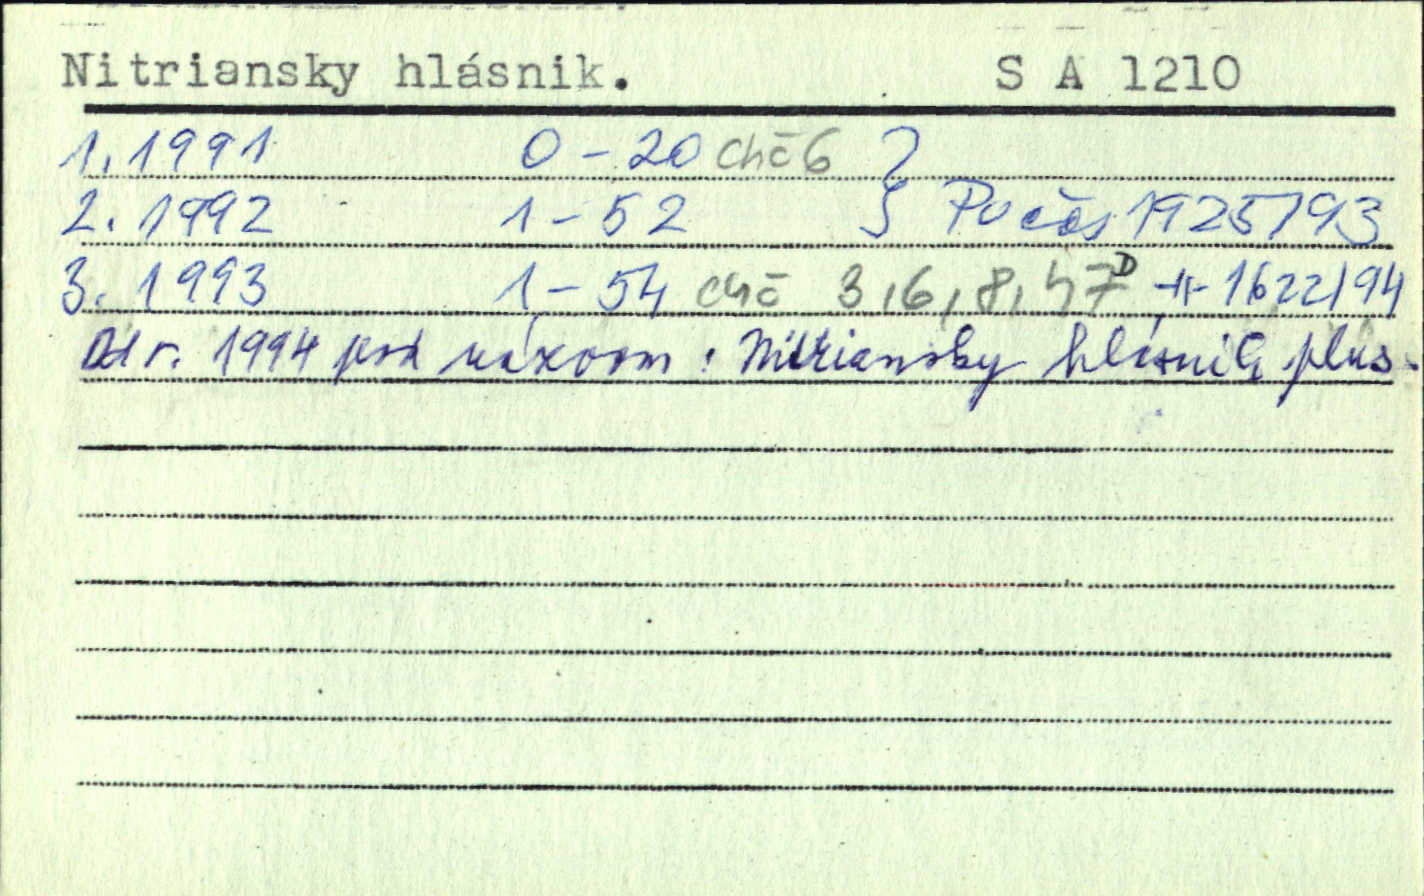 Nitriansky hlásnik. S A 1210
1. 1991 0-20 chč 6 }
2. 1992 1-52 } Pv čas 1925/93
3. 1993 1-54 chč 3,6,8,47 D -"- 1622/94
Od r. 1994 pod názvom: Nitriansky hlásnik plus.